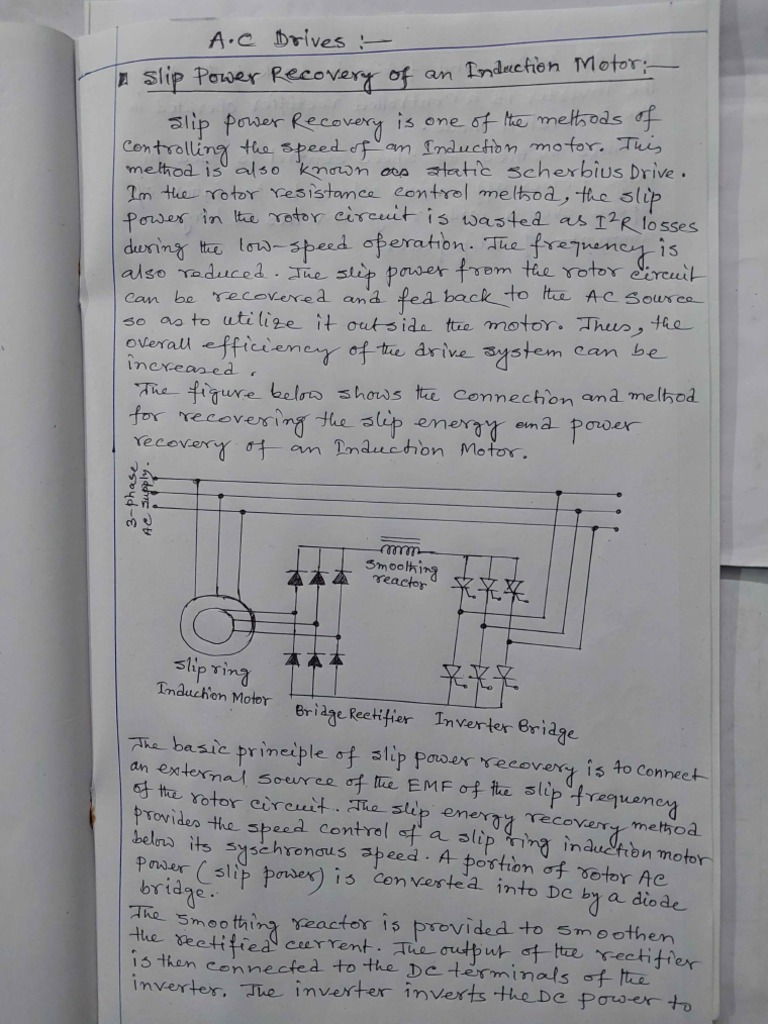 A.C Drives :—
Slip Power Recovery of an Induction Motor:—
Slip power Recovery is one of the methods of
controlling the speed of an Induction motor. This
method is also known as static scherbius Drive.
In the rotor resistance control method, the slip
power in the rotor circuit is wasted as I²R losses
during the low-speed operation. The frequency is
also reduced. The slip power from the rotor circuit
can be recovered and fed back to the AC source
so as to utilize it outside the motor. Thus, the
overall efficiency of the drive system can be
increased.
The figure below shows the connection and method
for recovering the slip energy and power
recovery of an Induction Motor.
3-phase
AC Supply.
Smoothing
reactor
Slip ring
Induction Motor
Bridge Rectifier
Inverter Bridge
The basic principle of slip power recovery is to connect
an external source of the EMF of the slip frequency
of the rotor circuit. The slip energy recovery method
provides the speed control of a slip ring induction motor
below its syschronous speed. A portion of rotor AC
power (slip power) is converted into DC by a diode
bridge.
The smoothing reactor is provided to smoothen
the rectified current. The output of the rectifier
is then connected to the DC terminals of the
inverter. The inverter inverts the DC power to